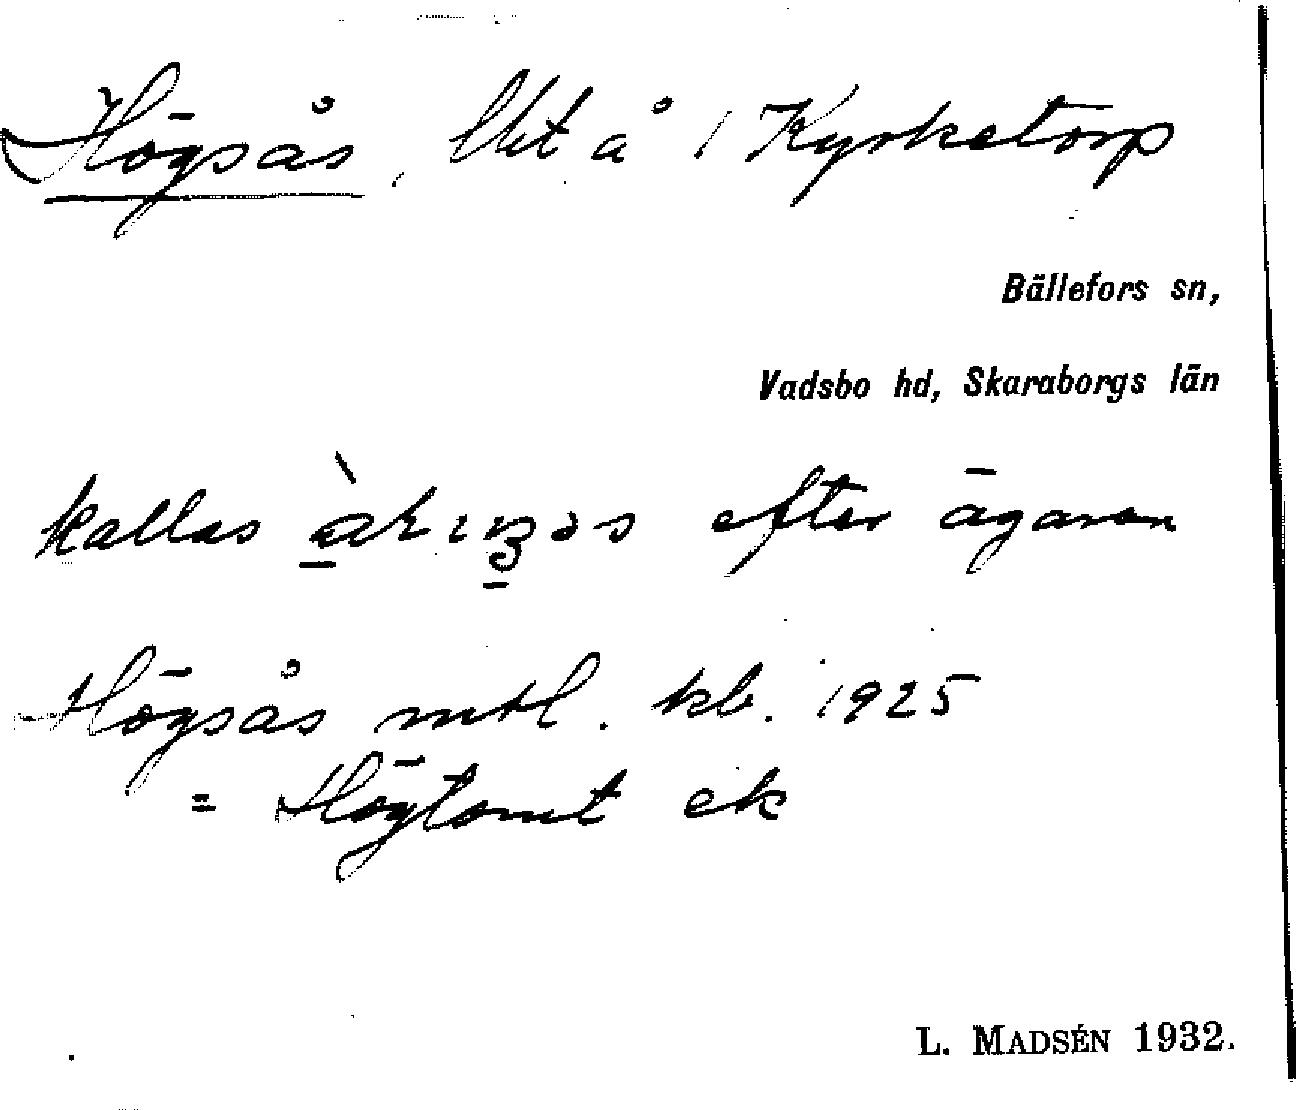 Högsås, lht å 1 Kyrketorp
Bällefors sn,
Vadsbo hd, Skaraborgs län
kallas efter ägaren
Högsås mtl. kb. 1925
= Högtomt ek
L. MADSÉN 1932.